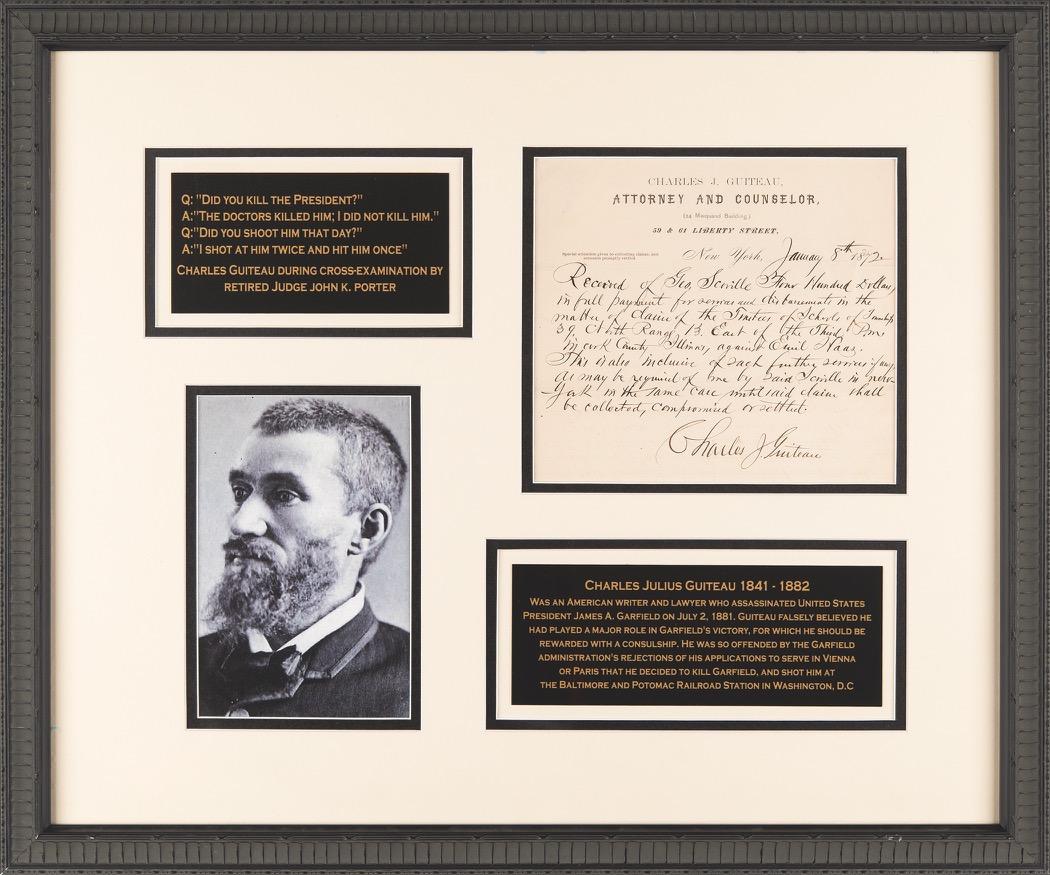 Q: "DID YOU KILL THE PRESIDENT?"
A: "THE DOCTORS KILLED HIM; I DID NOT KILL HIM."
Q: "DID YOU SHOOT HIM THAT DAY?"
A: "I SHOT AT HIM TWICE AND HIT HIM ONCE"
CHARLES GUITEAU DURING CROSS-EXAMINATION BY
RETIRED JUDGE JOHN K. PORTER
CHARLES J. GUITEAU,
ATTORNEY AND COUNSELOR,
(24 Marquand Building,)
59 & 61 LIBERTY STREET.
Special attention given to collecting claims, and
accounts promptly settled
New York, January 8th 1872
Received of Geo, Scoville Four Hundred Dollars,
in full payment for services and disbursements in the
matter of claim of the Trustees of Schools of Township
39, North Range, 13, East of the Third, P.m
in cook County Illinois, against Emil Haas.
This is also inclusive of such further services if any,
as may be required of me by said Scoville in new-
York in the same case until said claim shall
be collected, compromised or settled.
Charles J. Guiteau
CHARLES JULIUS GUITEAU 1841 - 1882
WAS AN AMERICAN WRITER AND LAWYER WHO ASSASSINATED UNITED STATES
PRESIDENT JAMES A. GARFIELD ON JULY 2, 1881. GUITEAU FALSELY BELIEVED HE
HAD PLAYED A MAJOR ROLE IN GARFIELD'S VICTORY, FOR WHICH HE SHOULD BE
REWARDED WITH A CONSULSHIP. HE WAS SO OFFENDED BY THE GARFIELD
ADMINISTRATION'S REJECTIONS OF HIS APPLICATIONS TO SERVE IN VIENNA
OR PARIS THAT HE DECIDED TO KILL GARFIELD, AND SHOT HIM AT
THE BALTIMORE AND POTOMAC RAILROAD STATION IN WASHINGTON, D.C